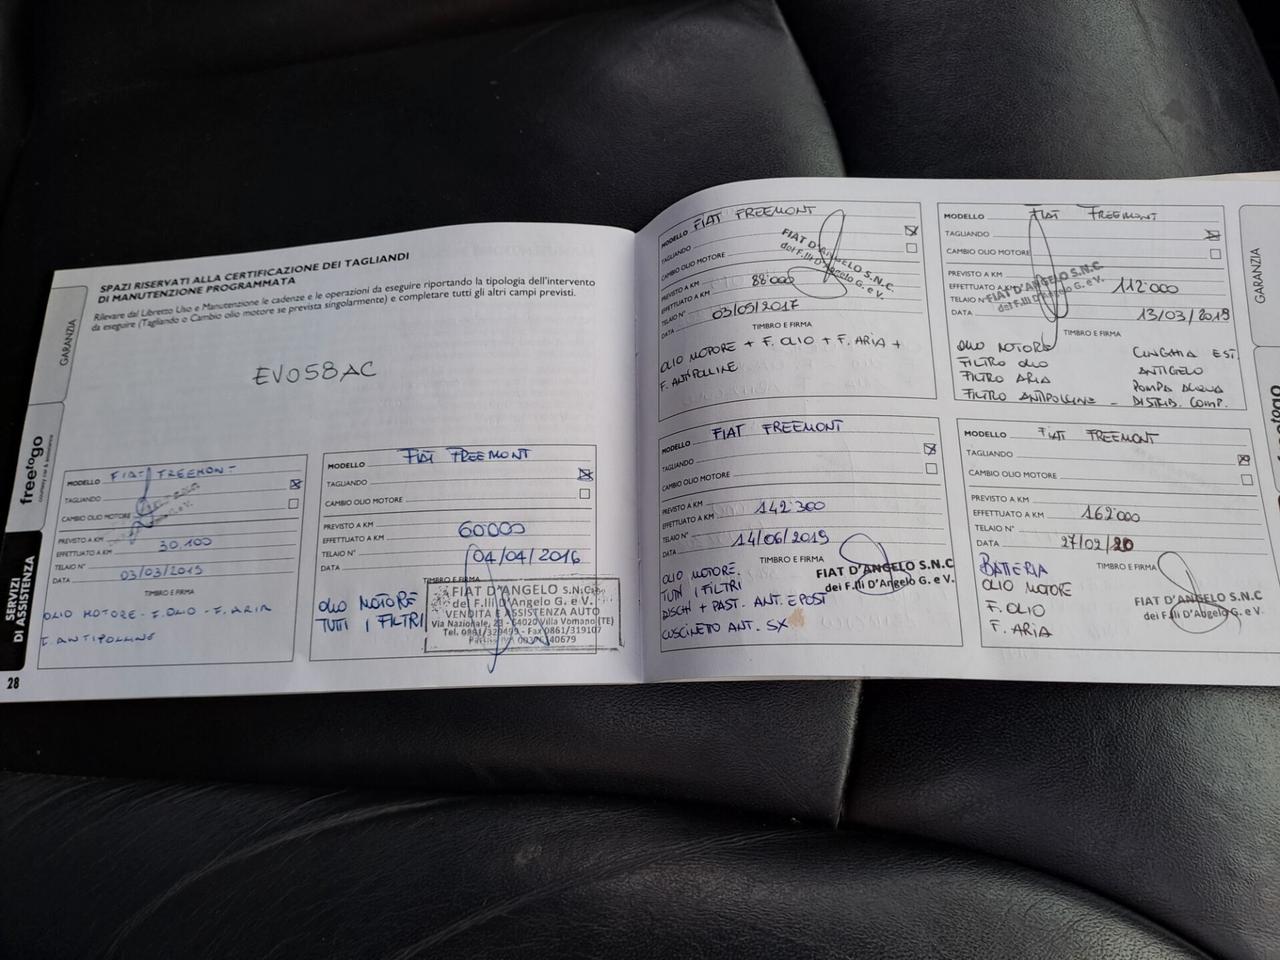 SPAZI RISERVATI ALLA CERTIFICAZIONE DEI TAGLIANDI
DI MANUTENZIONE PROGRAMMATA
Rilevare dal Libretto Uso e Manutenzione le cadenze e le operazioni da eseguire riportando la tipologia dell'intervento
da eseguire (Tagliando o Cambio olio motore se prevista singolarmente) e completare tutti gli altri campi previsti.
GARANZIA
freetogo
SERVIZI
DI ASSISTENZA
28
EV058AC
MODELLO FIAT FREEMONT
TAGLIANDO
CAMBIO OLIO MOTORE
PREVISTO A KM
EFFETTUATO A KM 30.100
TELAIO N°
DATA 03/03/2015
TIMBRO E FIRMA
OLIO MOTORE - F. OLIO - F. ARIA
F. ANTIPOLLINE
MODELLO FIAT FREEMONT
TAGLIANDO
CAMBIO OLIO MOTORE
PREVISTO A KM
EFFETTUATO A KM 60000
TELAIO N°
DATA 04/04/2016
TIMBRO E FIRMA
OLIO MOTORE
TUTTI I FILTRI
FIAT D'ANGELO S.N.C.
dei F.lli D'Angelo G. e V.
VENDITA E ASSISTENZA AUTO
Via Nazionale, 23 - 64020 Villa Vomano (TE)
Tel. 0861/329499 - Fax 0861/319107
MODELLO FIAT FREEMONT
TAGLIANDO
CAMBIO OLIO MOTORE
PREVISTO A KM
EFFETTUATO A KM 88'000
TELAIO N°
DATA 03/05/2017
TIMBRO E FIRMA
FIAT D'ANGELO S.N.C.
dei F.lli D'Angelo G. e V.
OLIO MOTORE + F. OLIO + F. ARIA +
F. ANTIPOLLINE
MODELLO FIAT FREEMONT
TAGLIANDO
CAMBIO OLIO MOTORE
PREVISTO A KM
EFFETTUATO A KM 112'000
TELAIO N°
FIAT D'ANGELO S.N.C.
dei F.lli D'Angelo G. e V.
DATA 13/03/2018
TIMBRO E FIRMA
OLIO MOTORE CINGHIA EST.
FILTRO OLIO ANTIGELO
FILTRO ARIA POMPA ACQUA
FILTRO ANTIPOLLINE - DISTRIB. COMP.
MODELLO FIAT FREEMONT
TAGLIANDO
CAMBIO OLIO MOTORE
PREVISTO A KM
EFFETTUATO A KM 142'300
TELAIO N°
DATA 14/06/2019
TIMBRO E FIRMA
OLIO MOTORE.
TUTTI I FILTRI
DISCHI + PAST. ANT. E POST
CUSCINETO ANT. SX
FIAT D'ANGELO S.N.C
dei F.lli D'Angelo G. e V.
MODELLO FIAT FREEMONT
TAGLIANDO
CAMBIO OLIO MOTORE
PREVISTO A KM
EFFETTUATO A KM 162'000
TELAIO N°
DATA 27/02/20
TIMBRO E FIRMA
BATTERIA
OLIO MOTORE
F. OLIO
F. ARIA
FIAT D'ANGELO S.N.C
dei F.lli D'Angelo G. e V.
GARANZIA